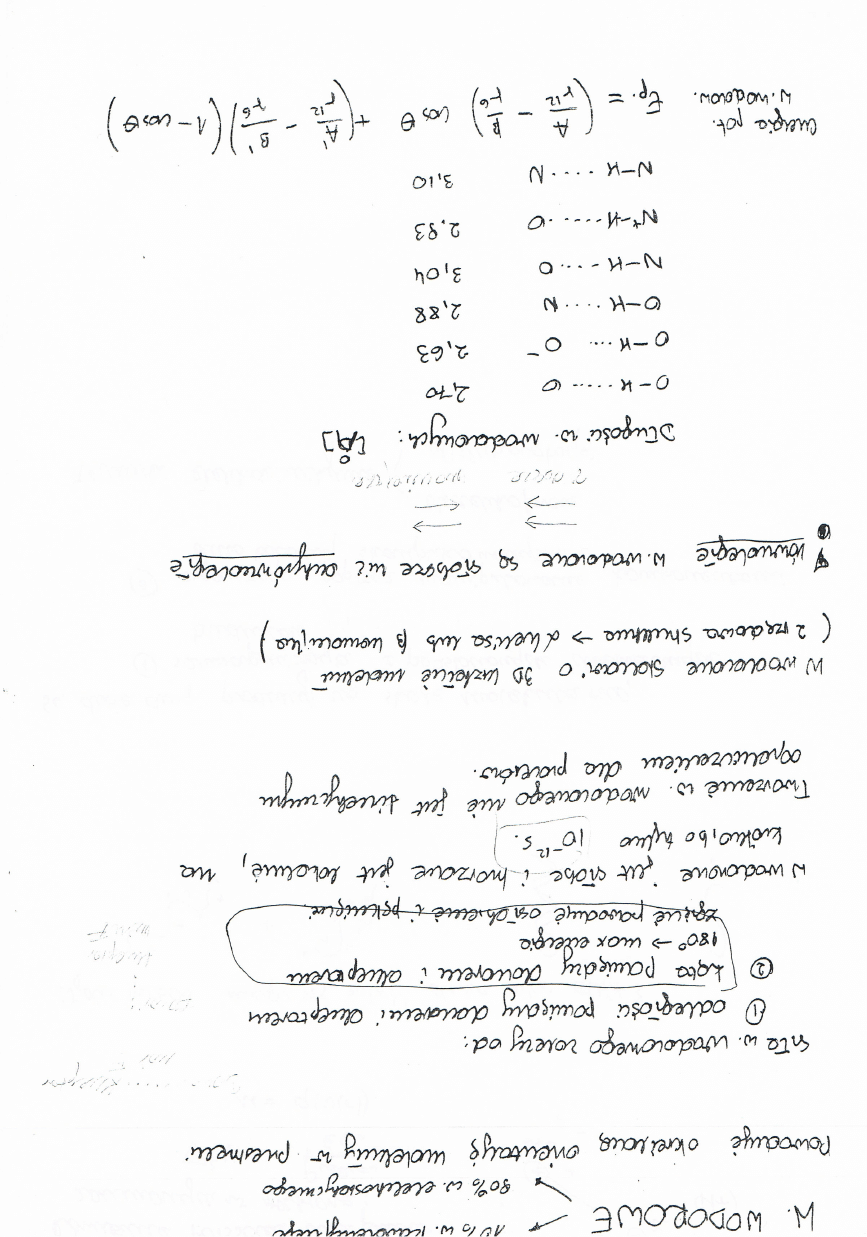 W. WODOROWE
10% w. kowalencyjnego
90% w. elektrostatycznego
Powoduje określoną orientację molekuły w przestrzeni
siła w. wodorowego zależy od:
① odległości pomiędzy donorem i akceptorem
② kąta pomiędzy donorem i akceptorem
180° → max energia
zgięcie powoduje osłabienie i pęknięcie.
W wodorowe jest słabe i tworzone jest lokalnie, na
krótko, bo tylko 10⁻¹² s.
Tworzenie w. wodorowego nie jest sterycznym
ograniczeniem dla procesów.
W wodorowe stanowi o 3D kształcie molekuł
(2 rzędowa struktura → α helisa lub β harmonijka)
równoległe w. wodorowe są słabsze niż antyrównoległe
Długości w. wodorowych: [Å]
O-H ······ O 2,70
O-H ···· O⁻ 2,63
O-H ····· N 2,88
N-H ····· O 3,04
N⁺-H ······ O 2,93
N-H ····· N 3,10
energia pot.
w. wodorow. Ep. = (A/r¹² - B/r⁶) cos θ + (A'/r¹² - B'/r⁶)(1 - cos θ)